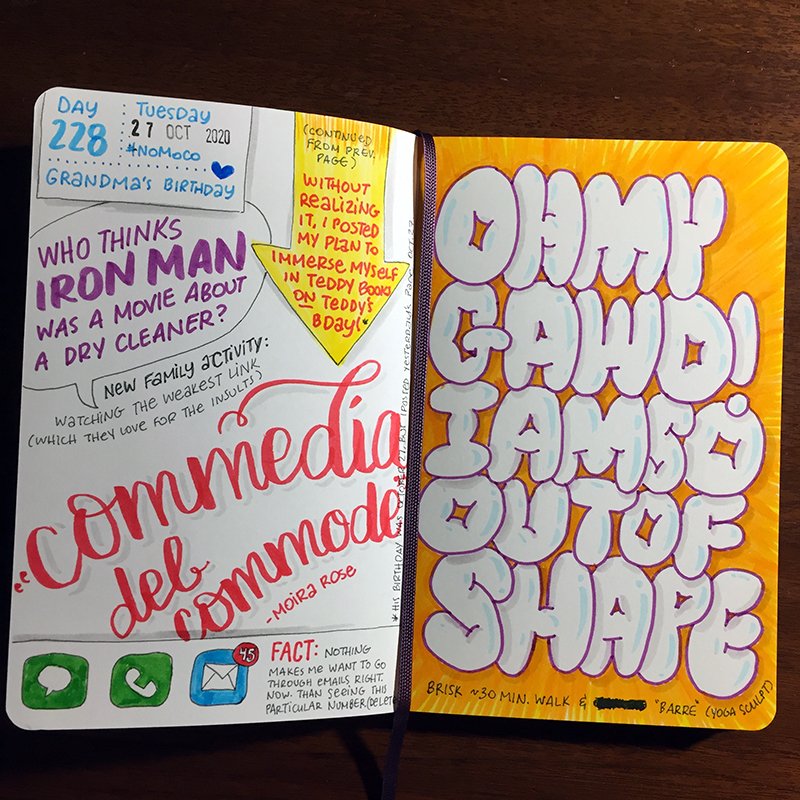 DAY
228
TUESDAY
27 OCT 2020
#NOMOCO
GRANDMA'S BIRTHDAY
WHO THINKS
IRON MAN
WAS A MOVIE ABOUT
A DRY CLEANER?
NEW FAMILY ACTIVITY:
WATCHING THE WEAKEST LINK
(WHICH THEY LOVE FOR THE INSULTS)
(CONTINUED
FROM PREV.
PAGE)
WITHOUT
REALIZING
IT, I POSTED
MY PLAN TO
IMMERSE MYSELF
IN TEDDY BOOKS
ON TEDDY'S
BDAY!*
"commedia
del
commode"
-MOIRA ROSE
*HIS BIRTHDAY WAS OCTOBER 27, BUT I POSTED YESTERDAY'S PAGE OCT 27
45
FACT: NOTHING
MAKES ME WANT TO GO
THROUGH EMAILS, RIGHT.
NOW. THAN SEEING THIS
PARTICULAR NUMBER.
OH MY
GAWD!
I AM SO
OUT OF
SHAPE
BRISK ~30 MIN. WALK & "BARRE" (YOGA SCULPT)